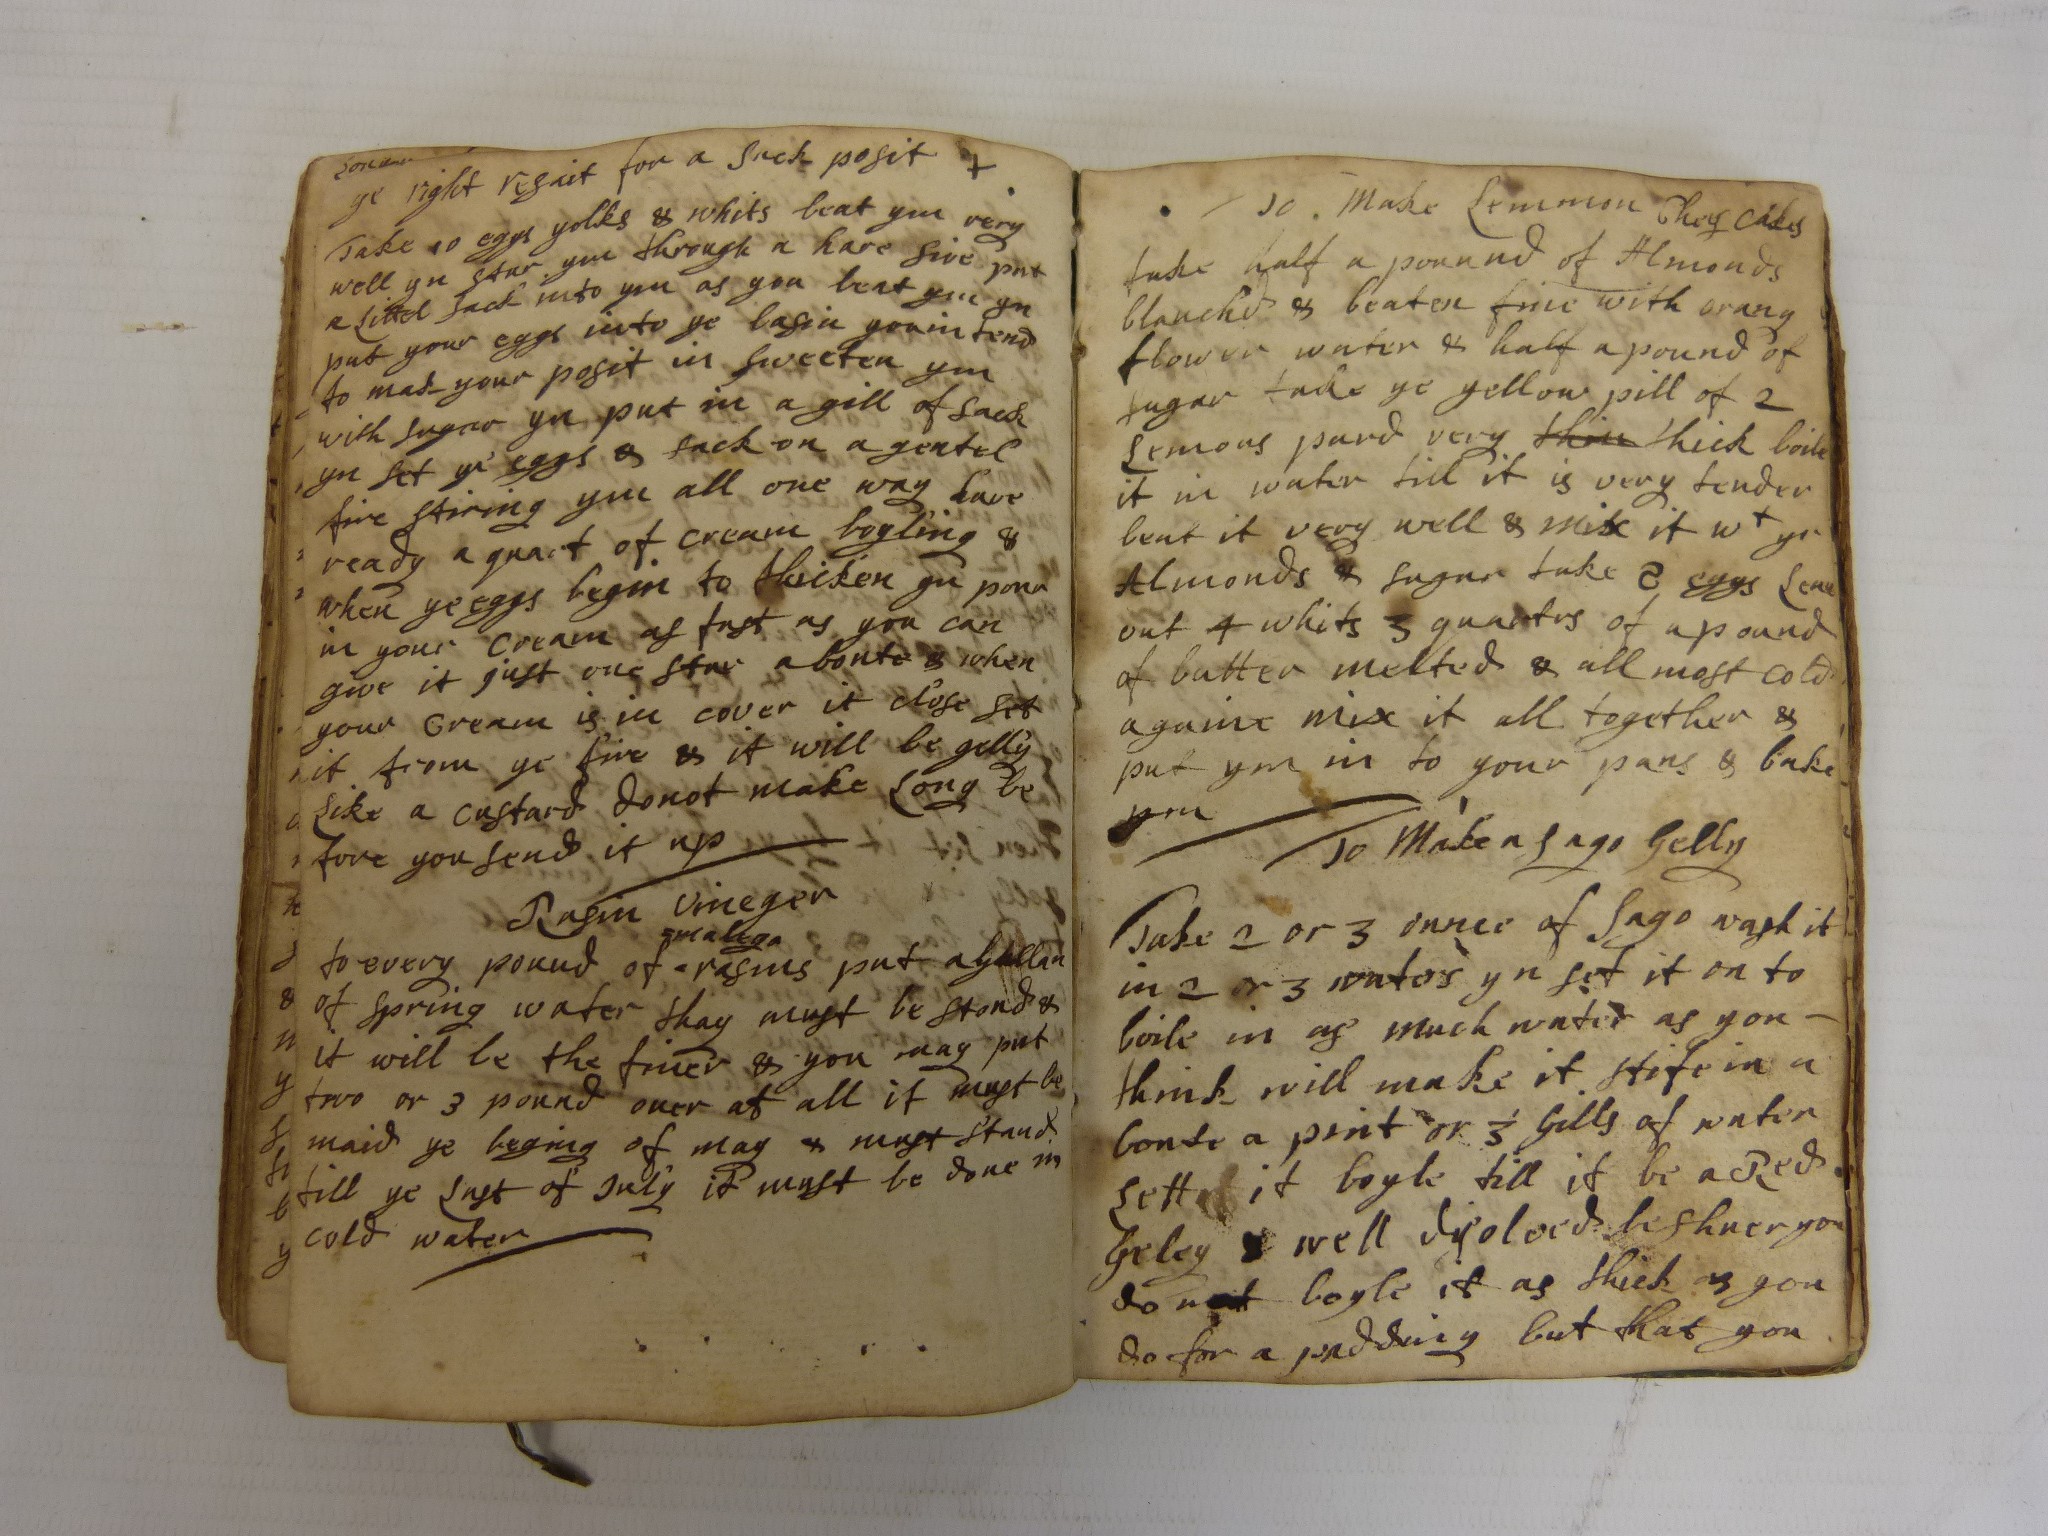 ye right resait for a Sack posit +
Take 10 eggs yolks & whits beat ym very
well yn stur ym through a hare sive put
a Littel sack into ym as you beat ym yn
put your eggs into ye basin you intend
to mak your posit in sweeten ym
with sugar yn put in a gill of sack
yn set ye eggs & sack on a gentel
fire stiring ym all one way have
ready a quart of cream boyling &
when ye eggs begin to thicken yn pour
in your Cream as fast as you can
give it just one stur aboute & when
your Cream is in cover it close set
it from ye fire & it will be gelly
Like a custard donot make Long be
fore you send it up
Rasin Vineger
malega
to every pound of rasins put a Gallan
of spring water thay must be stond &
it will be the finer & you may put
two or 3 pound over at all it must be
maid ye beging of may & must stand
till ye Last of July it must be done in
cold water
To Make Lemmon Chey Cakes
take half a pound of Almonds
blanchd & beaten fine with orang
flower water & half a pound of
sugar take ye yellow pill of 2
Lemons pard very thin thick boile
it in water till it is very tender
beat it very well & mix it wt ye
Almonds & sugar take 8 eggs Leave
out 4 whits 3 quarters of a pound
of butter melted & all most cold
againe mix it all together &
put ym in to your pans & bake
ym
To Make a Sago Gelly
Take 2 or 3 ounce of Sago wash it
in 2 or 3 waters yn set it on to
boile in as much water as you
think will make it stife in a
boute a pint or 3 Gills of water
Lett it boyle till it be a Red
Geley & well disolved be shuer you
do not boyle it as thick as you
do for a pudding but that you